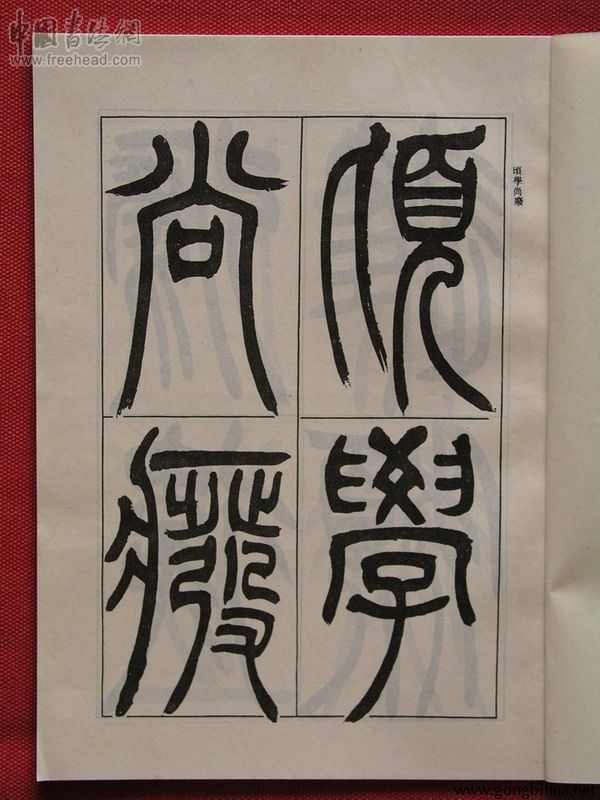 中國書法網
www.freehead.com
頃學尚癈
頃學
尚癈
www.gongbihua.net